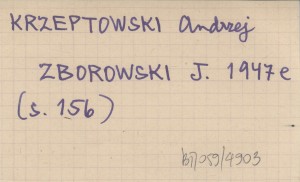 KRZEPTOWSKI Andrzej
ZBOROWSKI J. 1947 e
(s. 156)
bn/059/4903